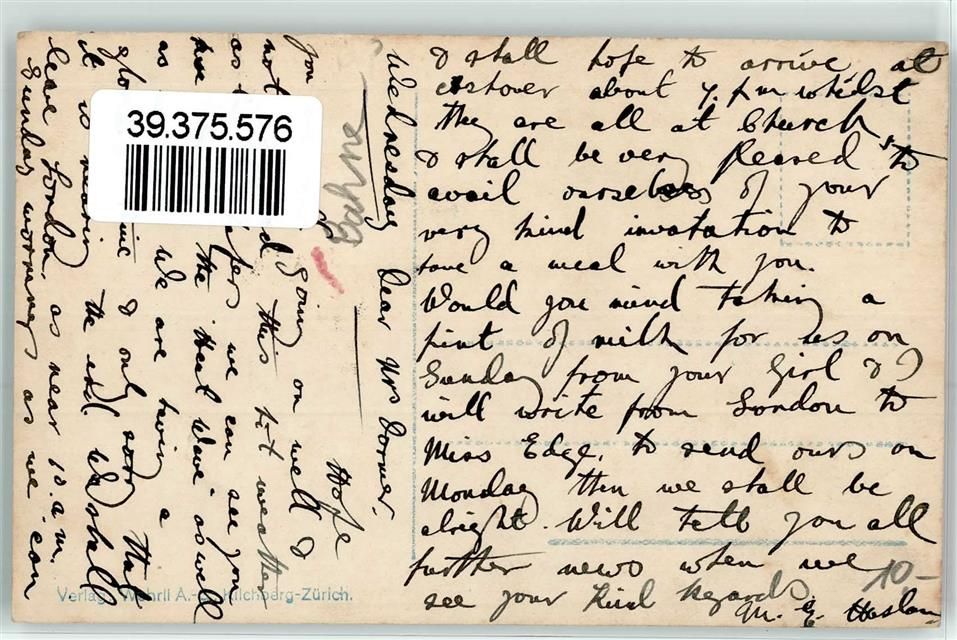 Wednesday
Dear Mrs Dorner.
Hope
you
going on well &
not this hot weather
as we can see you
have the Heat Wave - as well
as We are having a
& only sorry that
it is nearing the end We shall
leave London as near 10.a.m.
Sunday morning as we can
& shall hope to arrive at
about 7.pm whilst
they are all at Church,
& shall be very pleased to
avail ourselves of your
very kind invatation to
have a meal with you.
Would you mind taking a
pint of milk for us on
Sunday from your Girl & I
will write from London to
Miss Edge, to send ours on
Monday then we shall be
alright. Will tell you all
further news when we
see you Kind Regards
M. E. Haslam
10-
Bahne
39.375.576
Verlag Wehrli A.- Kilchberg-Zürich.